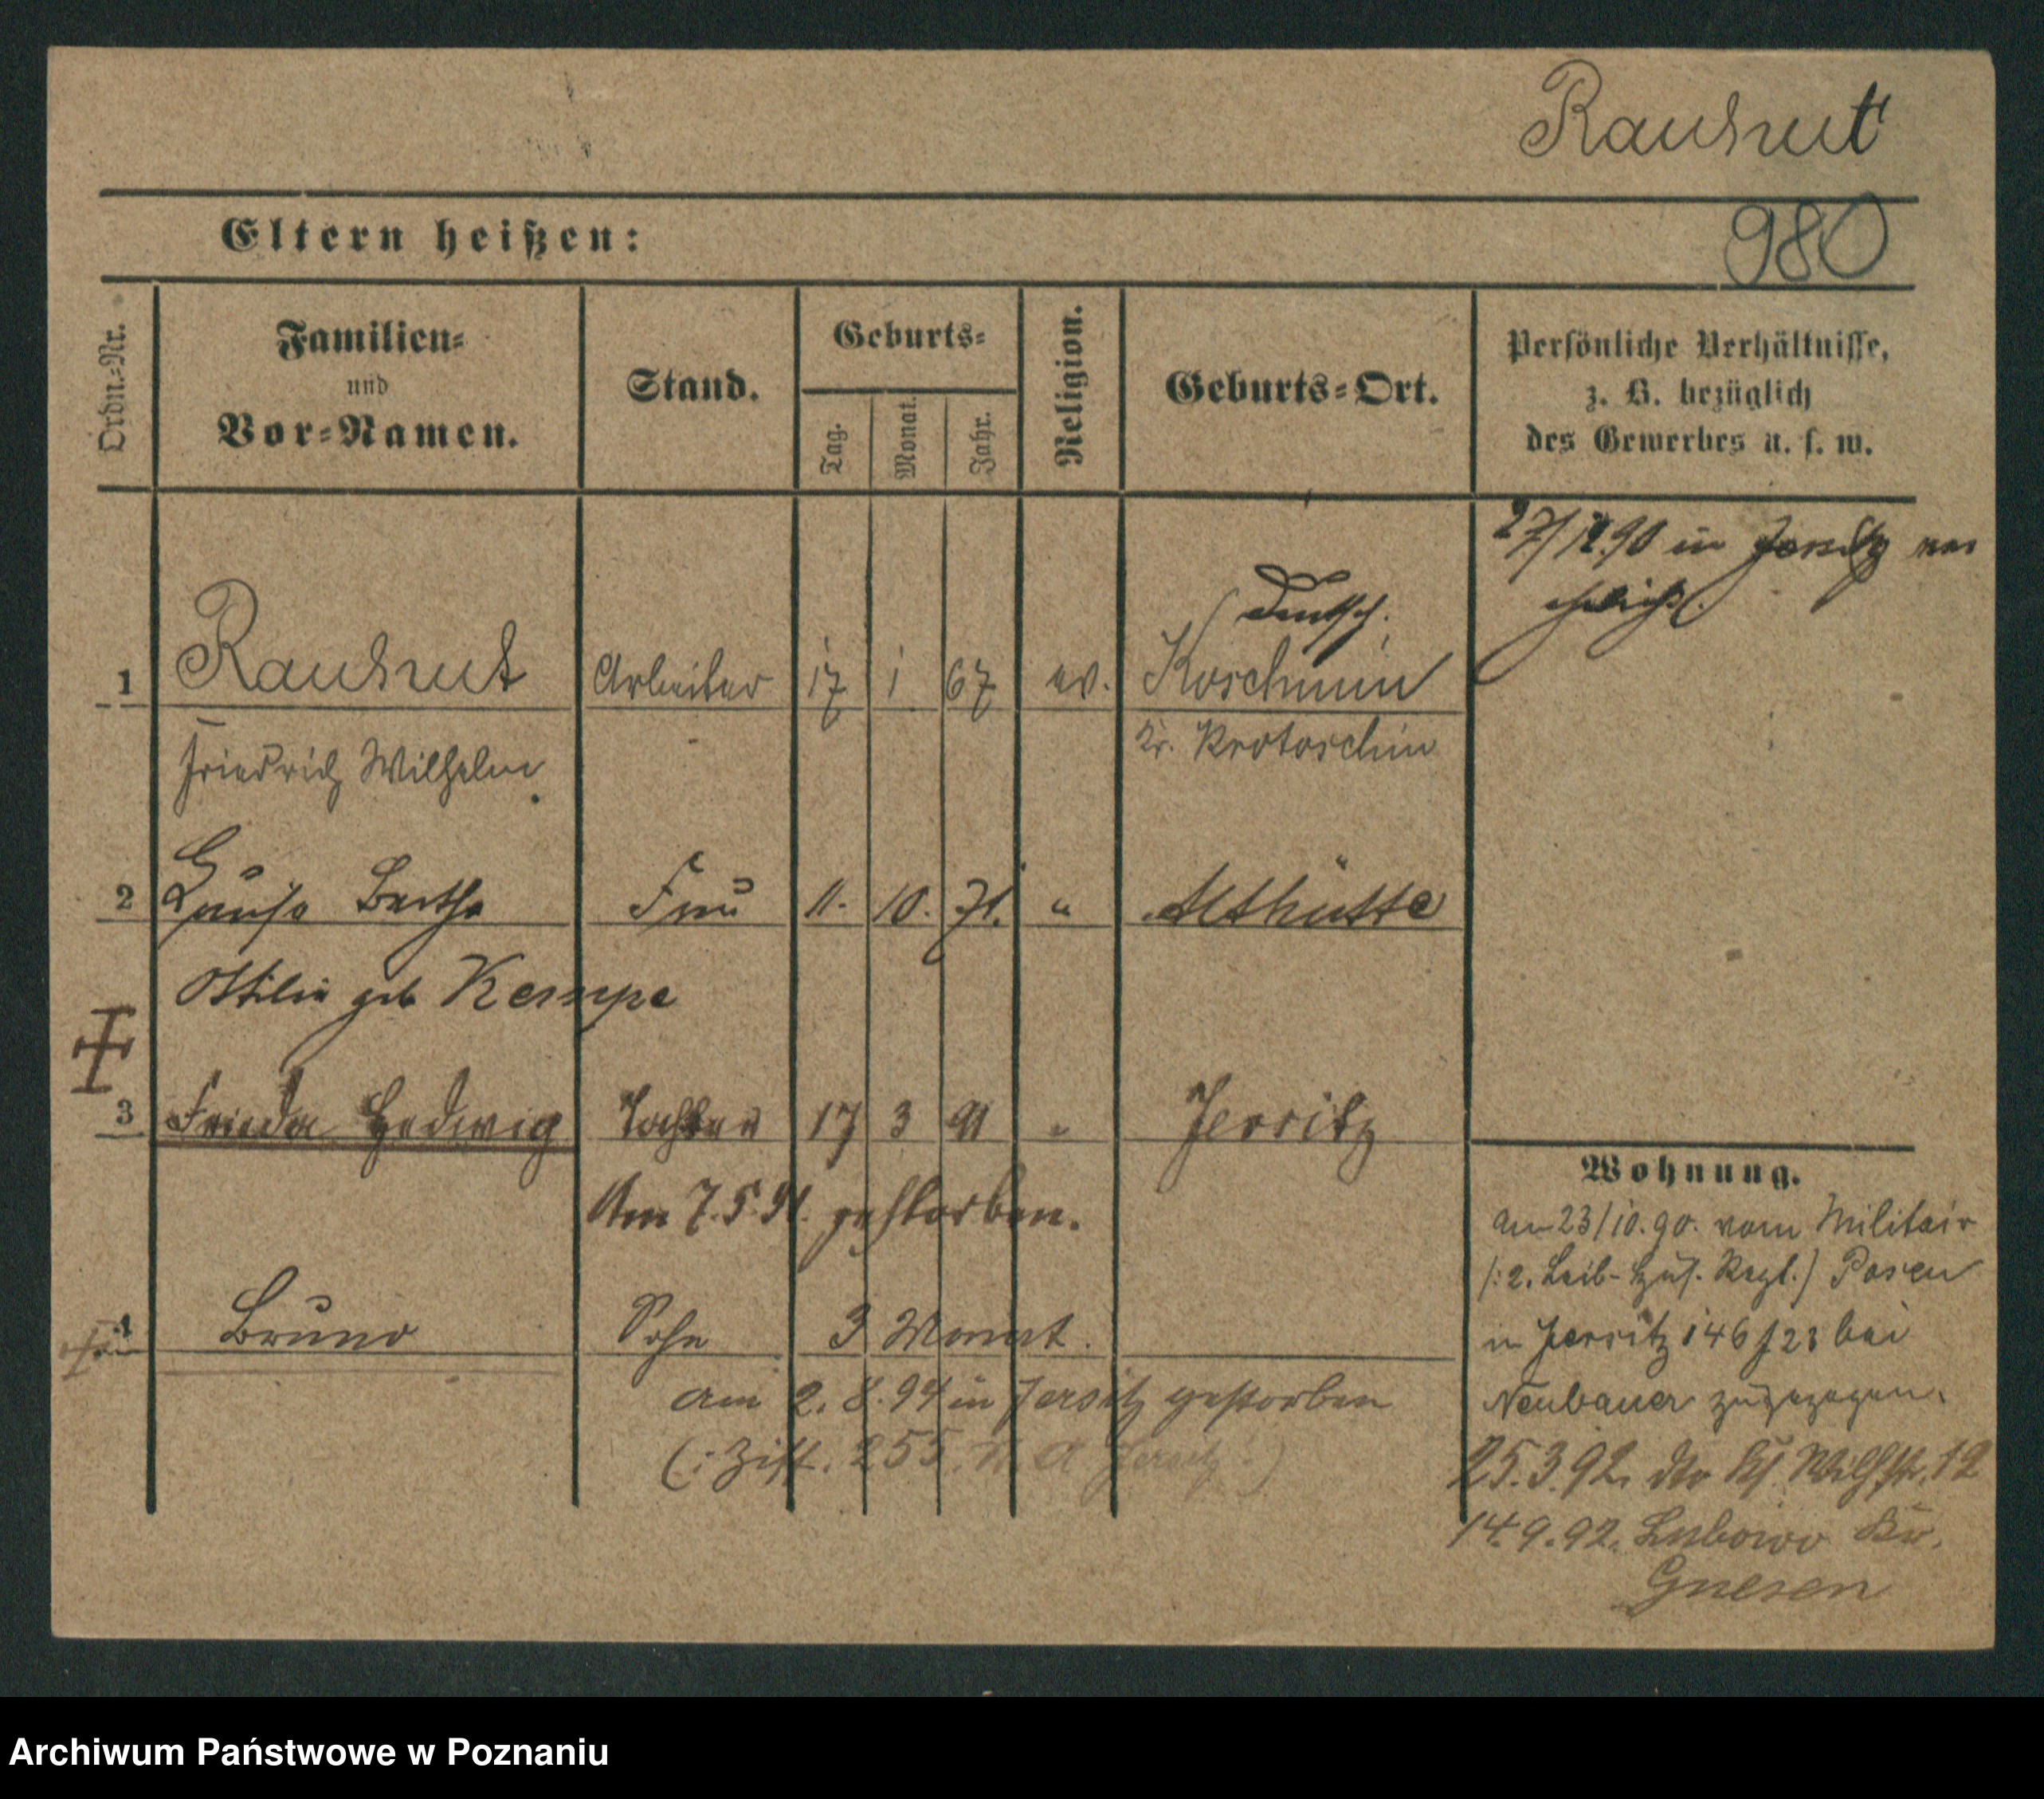 Rauhut
Eltern heißen:
980
Ordn.-Nr.
Familien-
und
Vor-Namen.
Stand.
Geburts-
Tag.
Monat.
Jahr.
Religion.
Geburts-Ort.
Persönliche Verhältnisse,
z. B. bezüglich
des Gewerbes u. s. w.
27/12.90 in Jersitz ver
ehelicht.
Deutsch.
1 Rauhut Arbeiter 17 1 67 ev. Koschmin
Friedrich Wilhelm Kr. Krotoschin
2 Luise Bertha Frau 11. 10. 71. " Althütte
Ottilie geb Kempe
3 Frieda Hedwig Tochter 17 3 91 " Jersitz
Am 7.5.91. gestorben.
4 Bruno Sohn 3 Monat.
am 2. 8. 94 in Jersitz gestorben
(: Zift. 255. Jersitz :)
Wohnung.
am 23/10.90. vom Militair
/: 2. Leib-Hus. Regt. / Posen
in Jersitz 146 f 23 bei
Neubauer zugezogen.
25.3.92. Wilhstr. 12
14.9.92. Lubowo Kr.
Gnesen
Archiwum Państwowe w Poznaniu